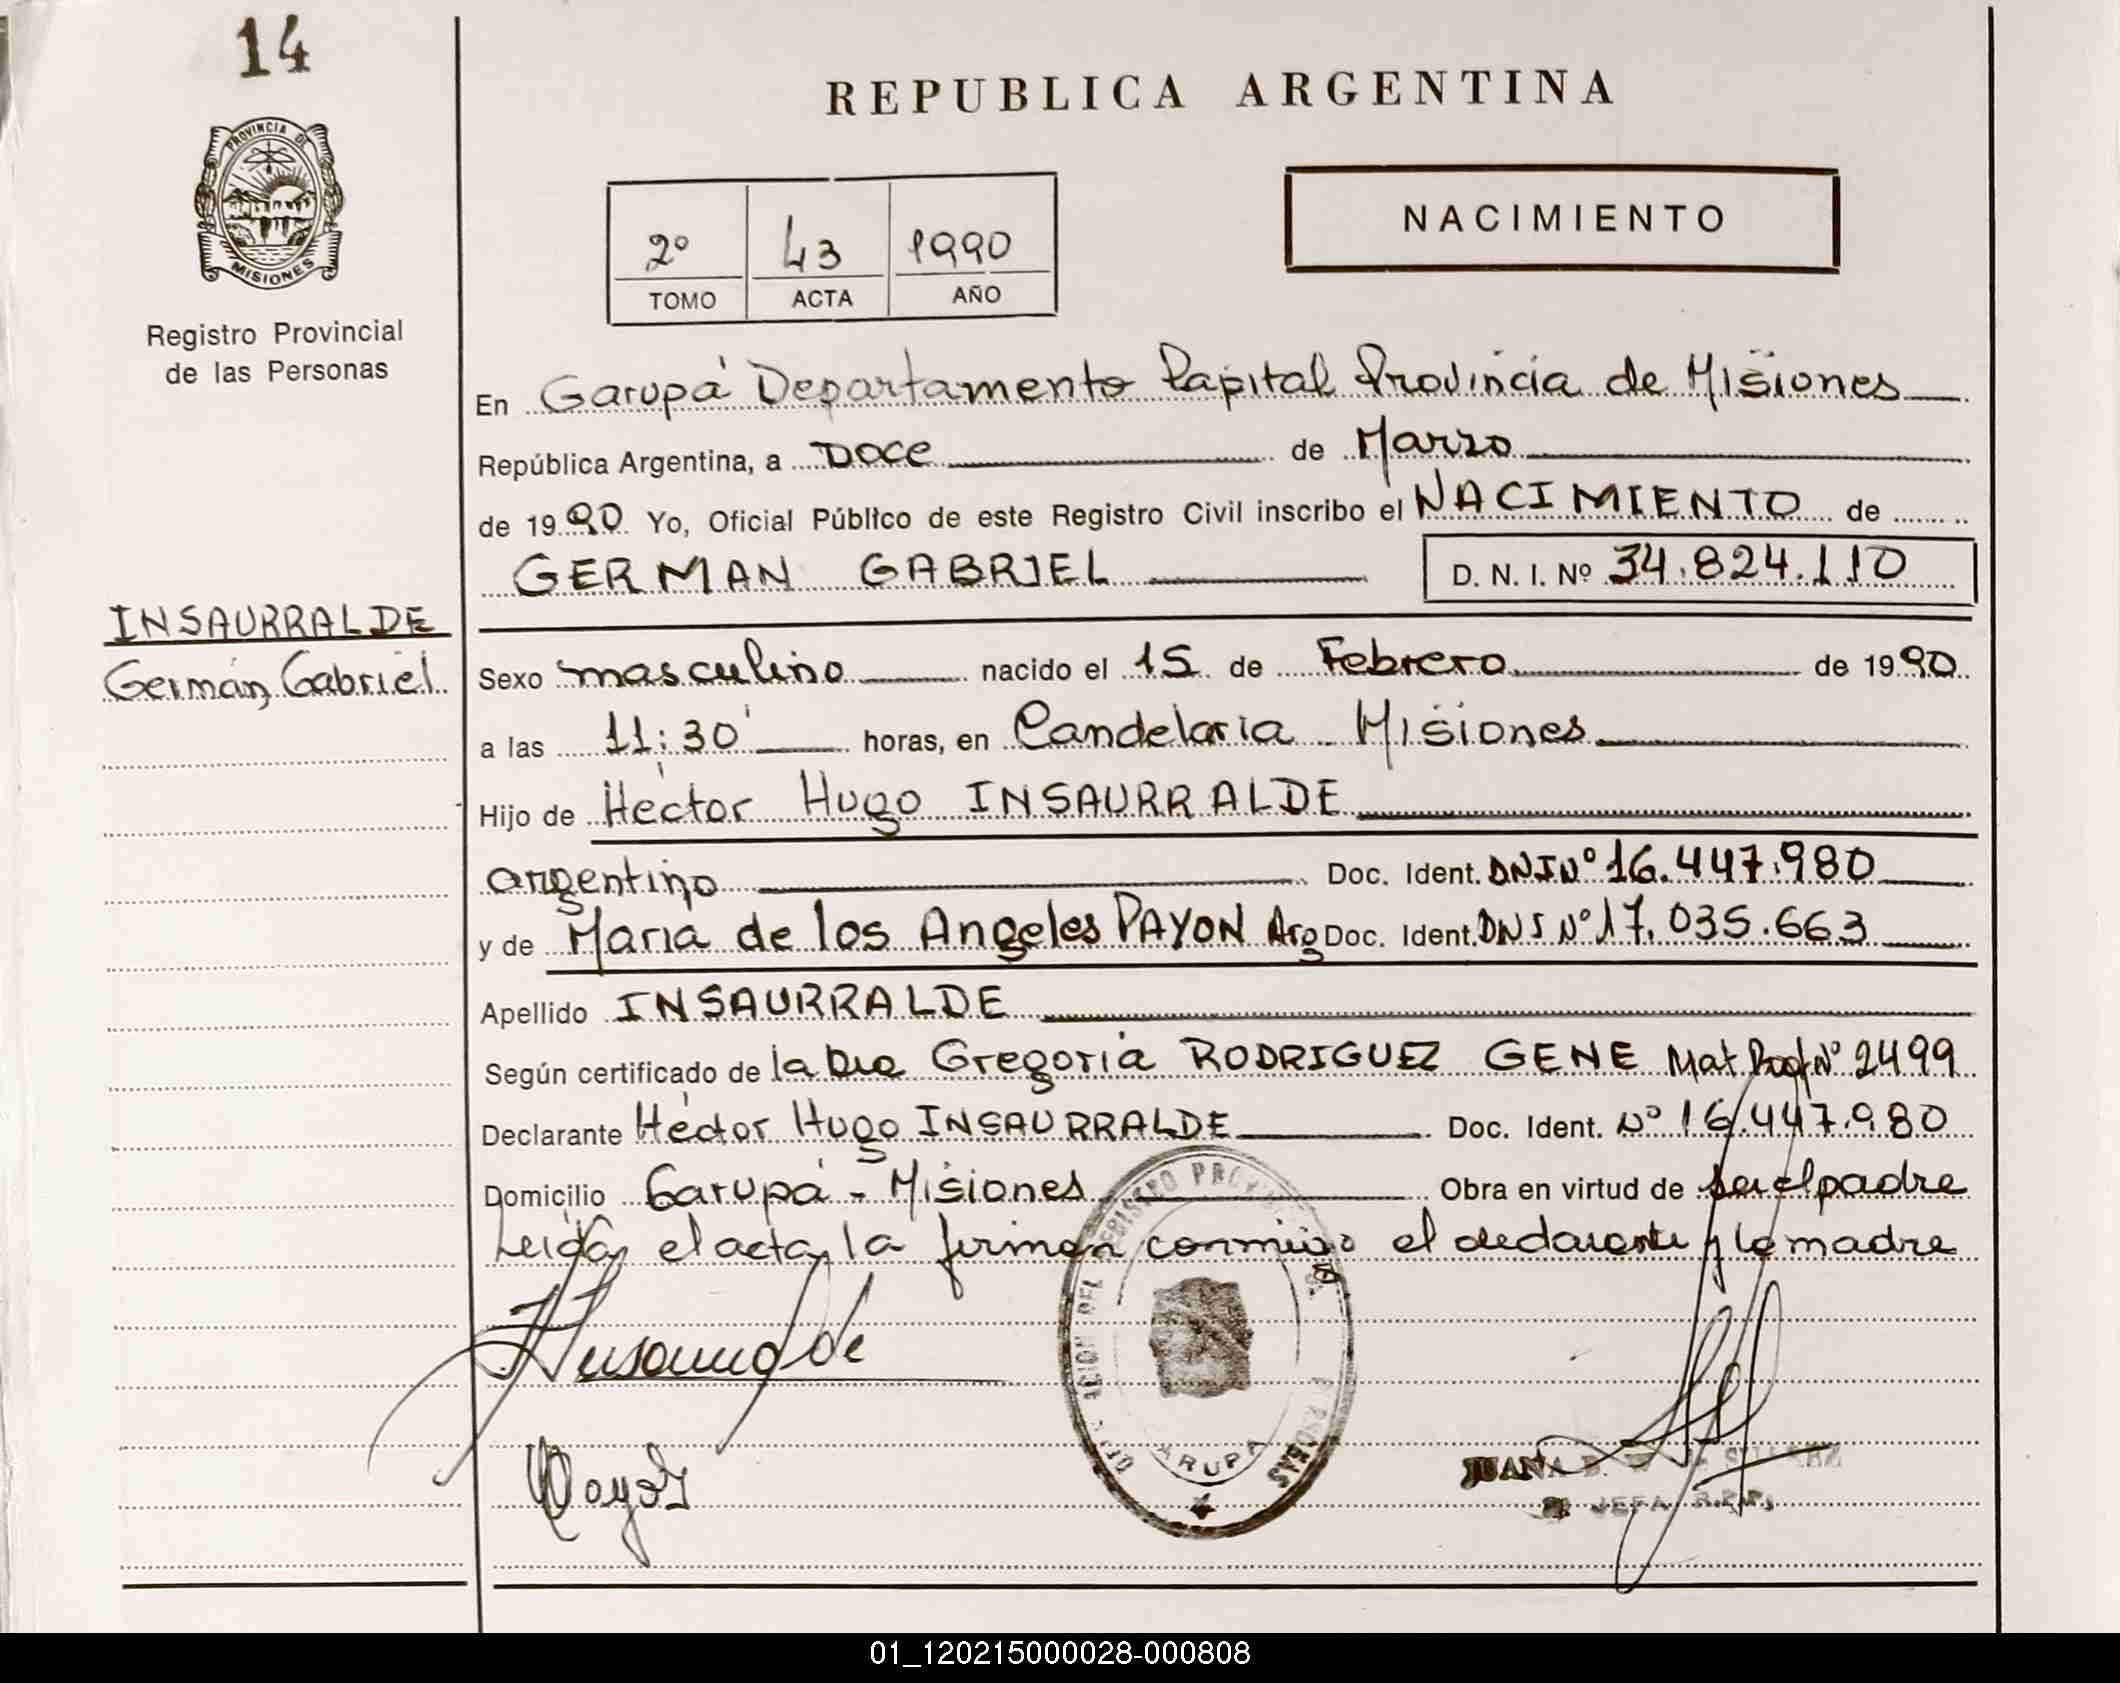 14
PROVINCIA DE
MISIONES
Registro Provincial
de las Personas
INSAURRALDE
Germán Gabriel
REPUBLICA ARGENTINA
2º 43 1990
TOMO ACTA AÑO
NACIMIENTO
En Garupá Departamento Capital Provincia de Misiones
República Argentina, a DOCE de Marzo
de 1990 Yo, Oficial Público de este Registro Civil inscribo el NACIMIENTO de
GERMAN GABRIEL D. N. I. Nº 34.824.110
Sexo masculino nacido el 15 de Febrero de 1990
a las 11:30' horas, en Candelaria Misiones
Hijo de Héctor Hugo INSAURRALDE
argentino Doc. Ident. DNI Nº 16.447.980
y de María de los Angeles PAYON Arg Doc. Ident. DNI Nº 17.035.663
Apellido INSAURRALDE
Según certificado de la Dra Gregoria RODRIGUEZ GENE Mat Prof Nº 2499
Declarante Héctor Hugo INSAURRALDE Doc. Ident. Nº 16.447.980
Domicilio Garupá - Misiones Obra en virtud de ser el padre
Leída el acta, la firman conmigo el declarante y la madre
Insaurralde
GARUPA
JUANA
JEFA R.P.P.
01_120215000028-000808